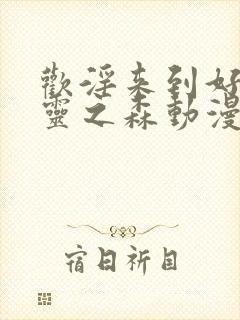 歡淫来到好
靈之森動漫
宿日祈目